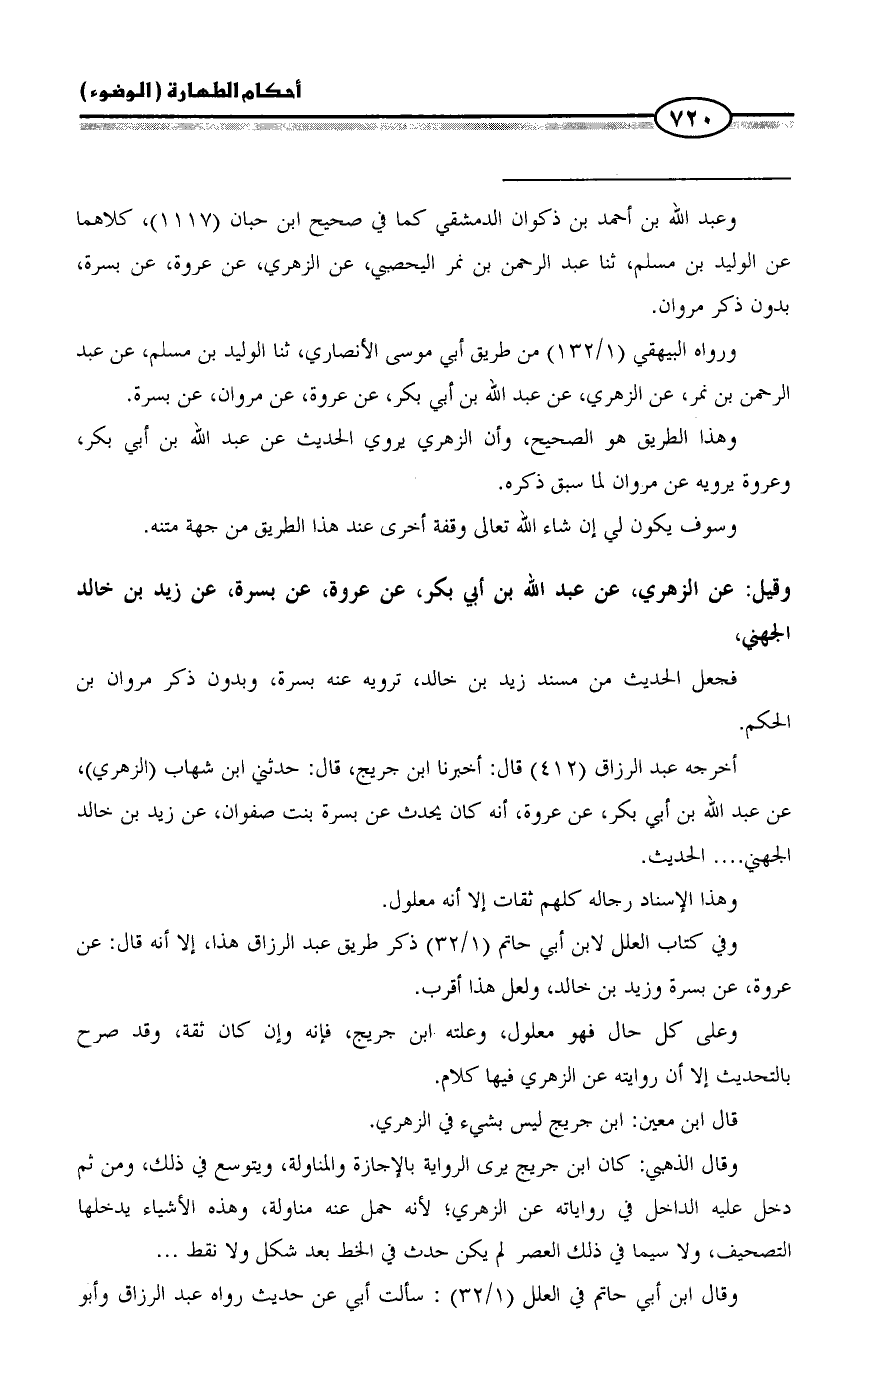 أحكام الطهارة (الوضوء)
٧٢٠
وعبد الله بن أحمد بن ذكوان الدمشقي كما في صحيح ابن حبان (١١١٧)، كلاهما
عن الوليد بن مسلم، ثنا عبد الرحمن بن نمر اليحصبي، عن الزهري، عن عروة، عن بسرة،
بدون ذكر مروان.
ورواه البيهقي (١٣٢/١) من طريق أبي موسى الأنصاري، ثنا الوليد بن مسلم، عن عبد
الرحمن بن نمر، عن الزهري، عن عبد الله بن أبي بكر، عن عروة، عن مروان، عن بسرة.
وهذا الطريق هو الصحيح، وأن الزهري يروي الحديث عن عبد الله بن أبي بكر،
وعروة يرويه عن مروان لما سبق ذكره.
وسوف يكون لي إن شاء الله تعالى وقفة أخرى عند هذا الطريق من جهة متنه.
وقيل: عن الزهري، عن عبد الله بن أبي بكر، عن عروة، عن بسرة، عن زيد بن خالد
الجهني،
فجعل الحديث من مسند زيد بن خالد، ترويه عنه بسرة، وبدون ذكر مروان بن
الحكم.
أخرجه عبد الرزاق (٤١٢) قال: أخبرنا ابن جريج، قال: حدثني ابن شهاب (الزهري)،
عن عبد الله بن أبي بكر، عن عروة، أنه كان يحدث عن بسرة بنت صفوان، عن زيد بن خالد
الجهني.... الحديث.
وهذا الإسناد رجاله كلهم ثقات إلا أنه معلول.
وفي كتاب العلل لابن أبي حاتم (٣٢/١) ذكر طريق عبد الرزاق هذا، إلا أنه قال: عن
عروة، عن بسرة وزيد بن خالد، ولعل هذا أقرب.
وعلى كل حال فهو معلول، وعلته ابن جريج، فإنه وإن كان ثقة، وقد صرح
بالتحديث إلا أن روايته عن الزهري فيها كلام.
قال ابن معين: ابن جريج ليس بشيء في الزهري.
وقال الذهبي: كان ابن جريج يرى الرواية بالإجازة والمناولة، ويتوسع في ذلك، ومن ثم
دخل عليه الداخل في رواياته عن الزهري؛ لأنه حمل عنه مناولة، وهذه الأشياء يدخلها
التصحيف، ولا سيما في ذلك العصر لم يكن حدث في الخط بعد شكل ولا نقط ...
وقال ابن أبي حاتم في العلل (٣٢/١) : سألت أبي عن حديث رواه عبد الرزاق وأبو